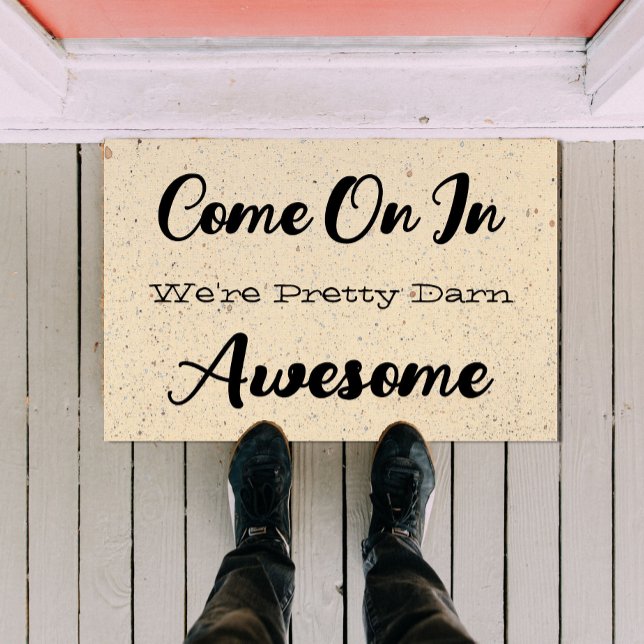 Come On In
We're Pretty Darn
Awesome